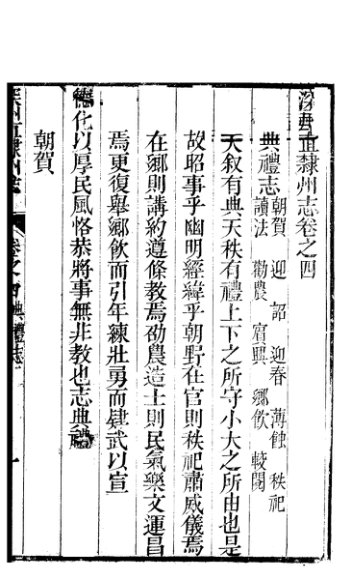 直隸州志卷之四
典禮志
朝賀 迎詔 迎春 薄蝕 秩祀
讀法 勸農 賓興 鄉飲 較閱
天叙有典天秩有禮上下之所守小大之所由也是
故昭事乎幽明經緯乎朝野在官則秩祀肅威儀焉
在鄉則講約遵條教焉劭農造士則民氣樂文運昌
焉更復舉鄉飲而引年練壯勇而肄武以宣
德化以厚民風恪恭將事無非教也志典禮
朝賀
州直隸州志 卷之四典禮志 一